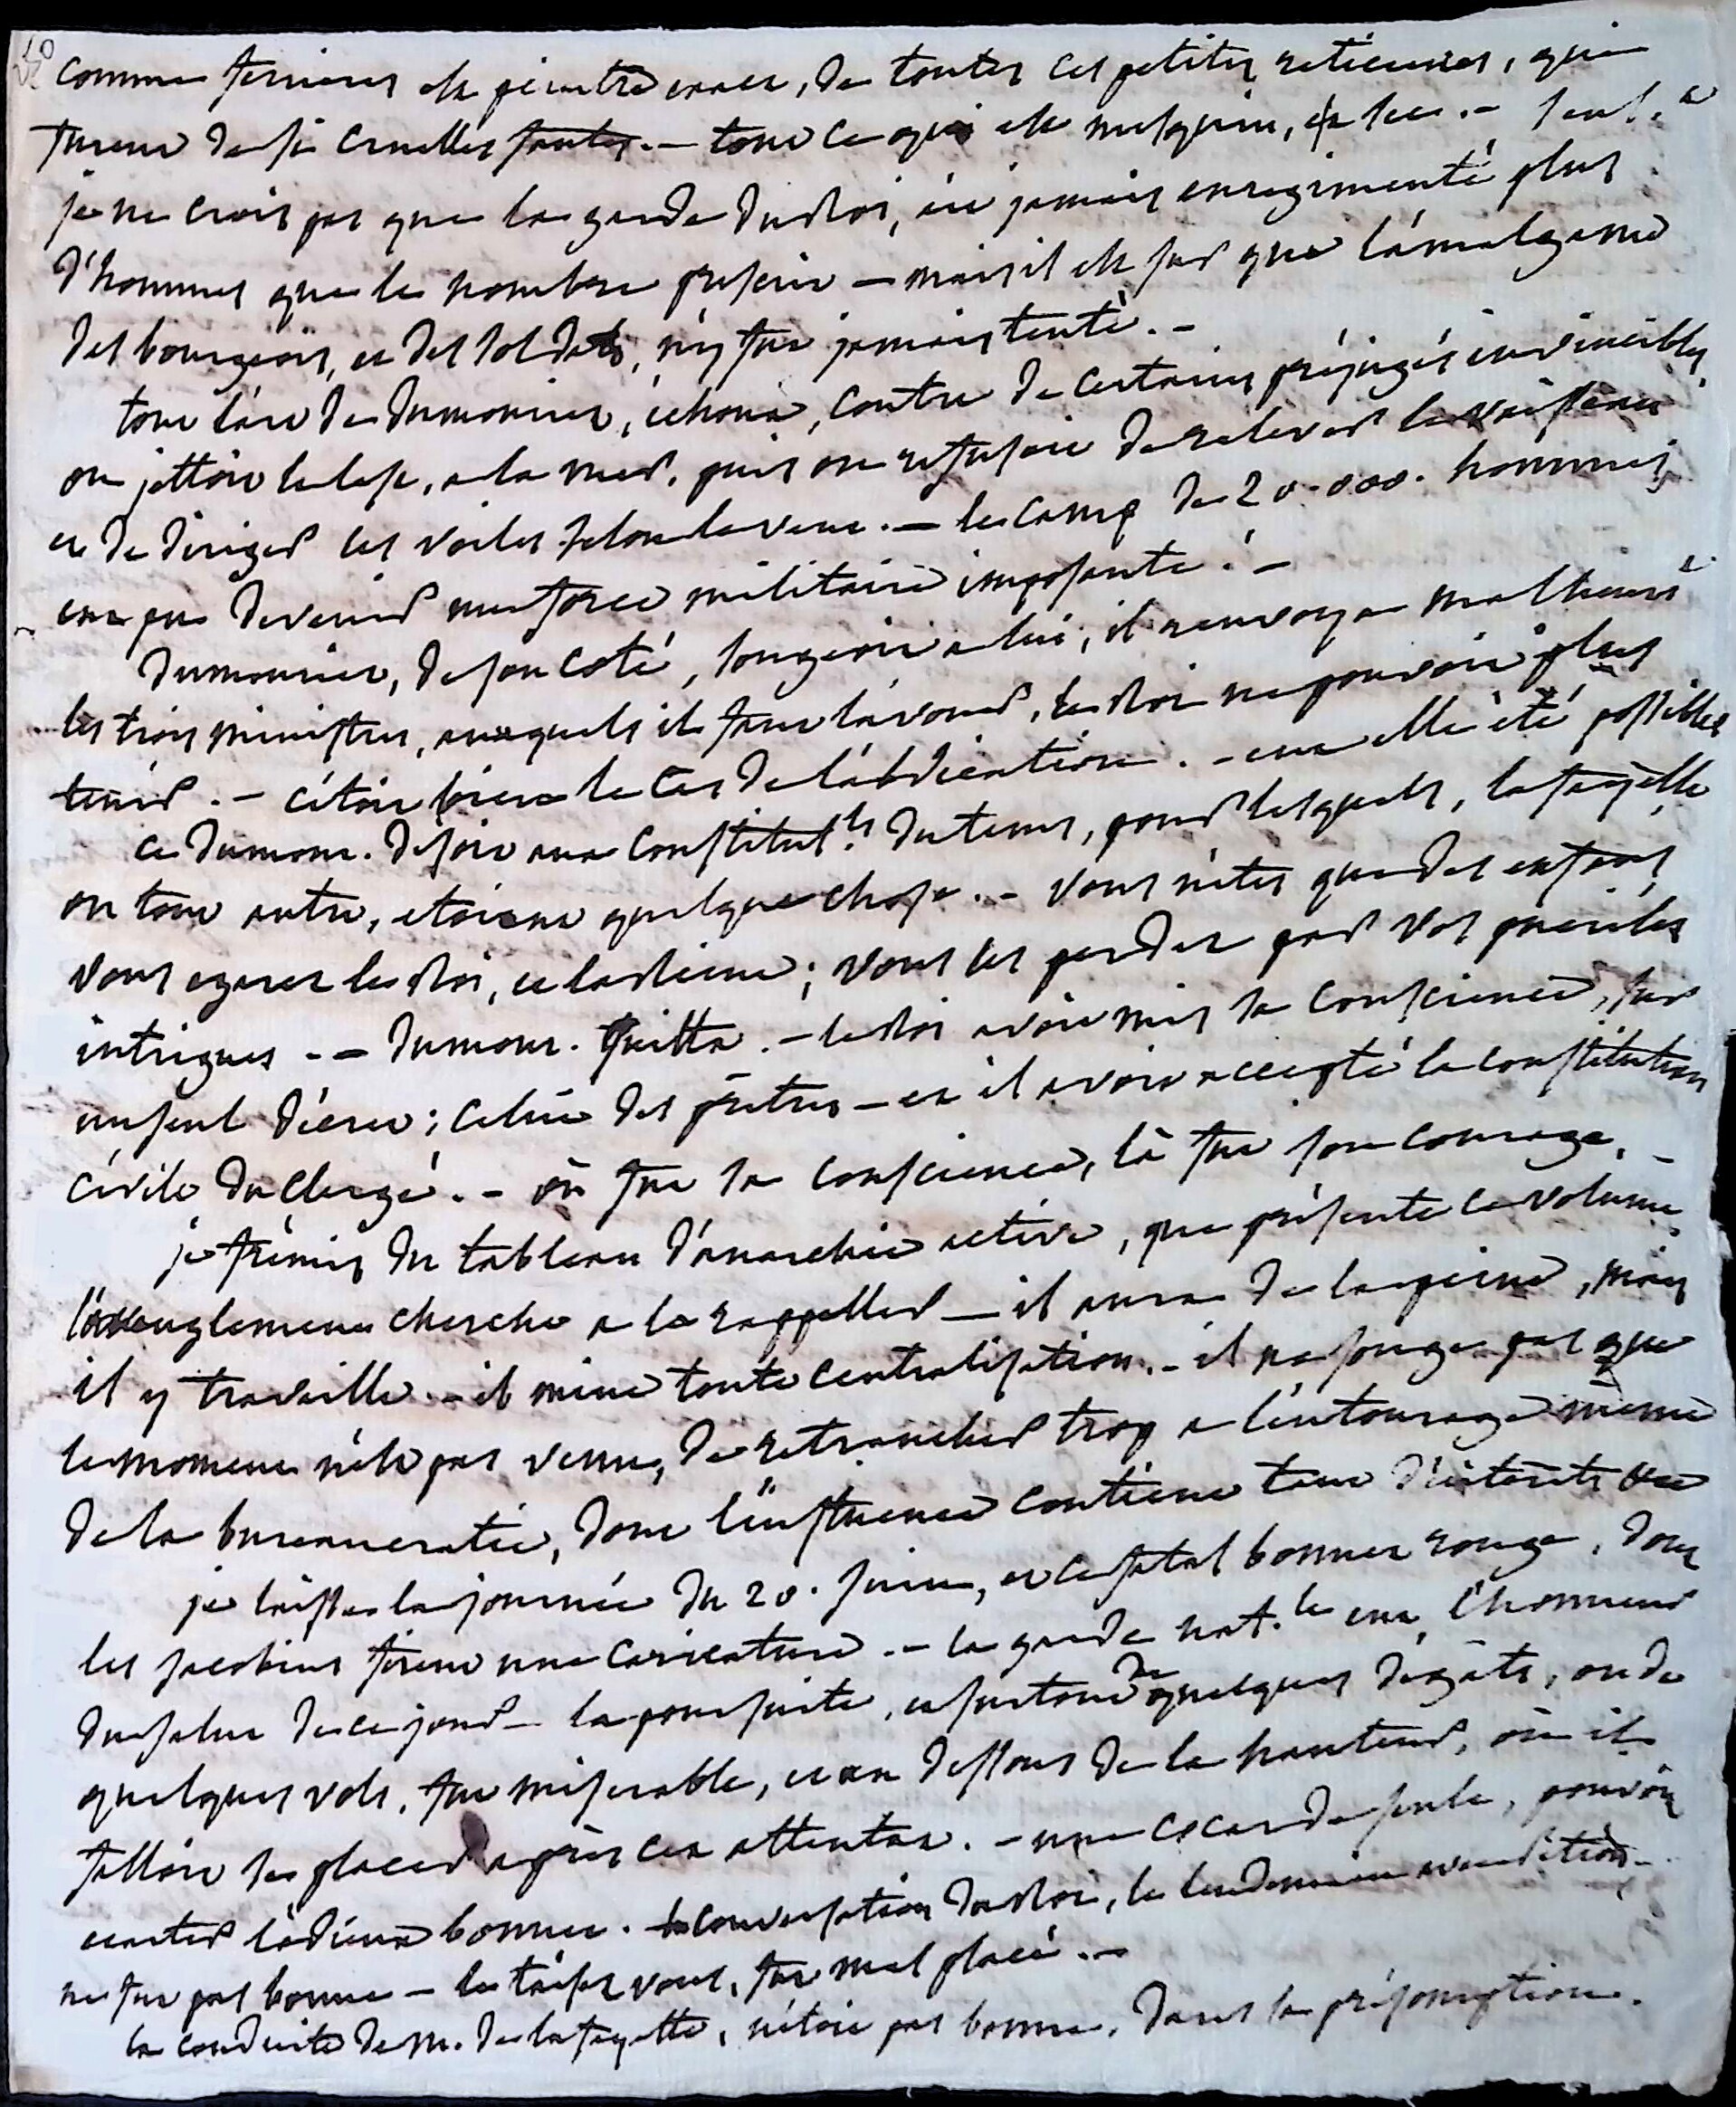 comme ferrieres est pénétré encor, de toutes ces petites reticences, qui
furent de si cruelles fautes. – tout ce qui est mesquin, est sec. –
je ne crois pas que la garde du Roi, ait jamais enregimenté plus
d'hommes que le nombre prescrit – mais il est sur que l'amalgame
des bourgeois, et des soldats, n'y fut jamais tenté. –
tout l'art de dumourier, échoua, contre de certains préjugés invincibles,
on jettoit le lest, a la mer, puis on refusoit de relever le vaisseau
et de diriger les voiles selon le vent. – le camp de 20.000. hommes
eut pu devenir une force militaire imposante. –
Dumourier, de son coté, songeoit a lui; il renvoya
les trois ministres, auxquels il faut l'avouer, le Roi ne pouvoit plus
tenir. – c'étoit bien le cas de l'abdication. – eut elle été possible
ce dumour. disoit aux constitut.ls du tems, pour lesquels, lafayette
ou tout autre, etoient quelque chose. – vous n'etes que des enfans
vous egarez le Roi, et la Reine; vous les perdez par vos pueriles
intrigues. – dumour. quitta. – le Roi avoit mis sa conscience, sur
un seul décret; celui des prêtres – et il avoit accepté la constitution
civile du Clergé. – où fut sa conscience, là fut son courage. –
je frémis du tableau d'anarchie active, que présente ce volume.
l'aveuglement cherche a la rappeller – il aura de la peine, mais
il y travaille. – il mine toute centralisation. – il ne songe pas que
le moment n'est pas venu, de retrancher trop a l'entourage même
de la bureaucratie, dont l'influence contient tant d'intérêts
je laisse la journée du 20. juin, et ce fatal bonnet rouge, dont
les jacobins firent une caricature. – la garde nat.le eut, l'honneur
du salut de ce jour – la poursuite, et surtout de quelques dégâts, ou de
quelques vols, fut miserable, et au dessous de la hauteur, où il
falloit se placer après cet attentat. – une cocarde seule, pouvoit
ecarter l'odieux bonnet. la conversation du Roi, le lendemain
ne fut pas bonne – le taisez vous, fut mal placé. –
la conduite de m. de lafayette, n'étoit pas bonne, dans sa présomption.